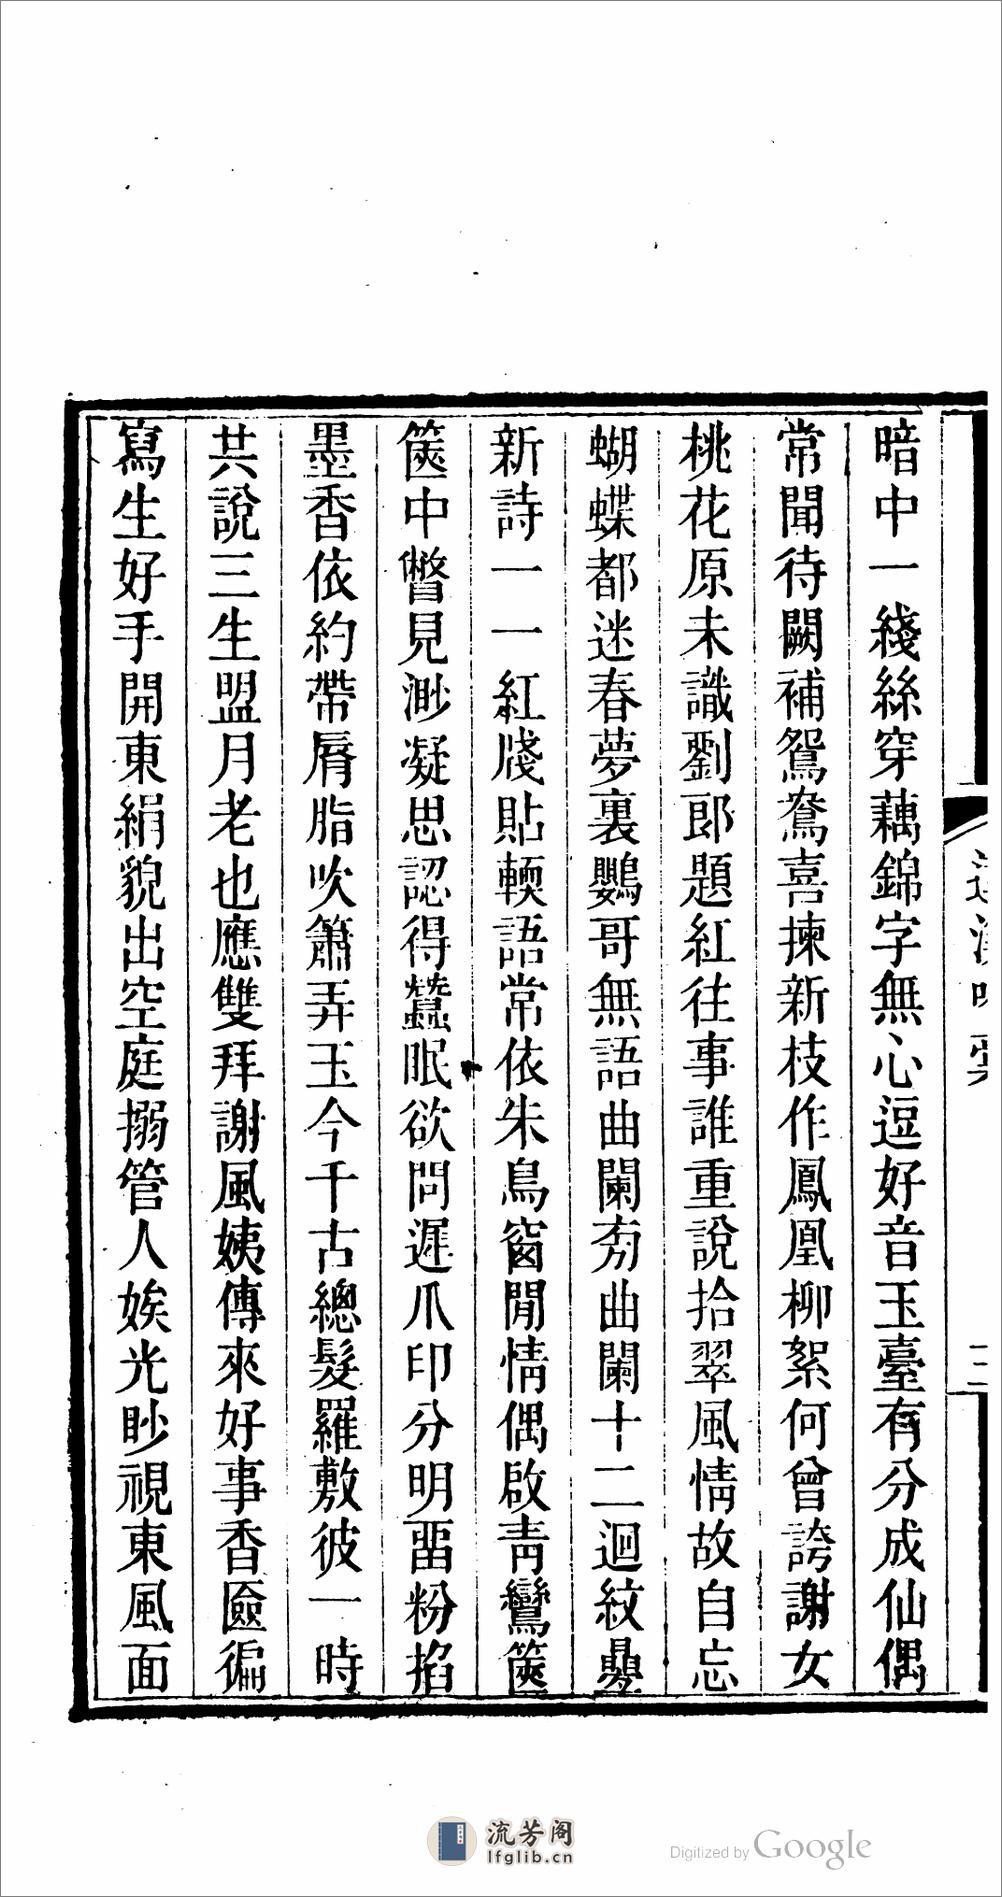 暗中一綫絲穿藕錦字無心逗好音玉臺有分成仙偶
常聞待闕補鴛鴦喜揀新枝作鳳凰柳絮何曾誇謝女
桃花原未識劉郎題紅往事誰重說拾翠風情故自忘
蝴蝶都迷春夢裏鸚哥無語曲闌旁曲闌十二迴紋疊
新詩一一紅牋貼輭語常依朱鳥窗閒情偶啟青鸞篋
篋中瞥見渺凝思認得蠶眠欲問遲爪印分明畱粉掐
墨香依約帶脣脂吹簫弄玉今千古總髮羅敷彼一時
共說三生盟月老也應雙拜謝風姨傳來好事香匳徧
寫生好手開東絹貌出空庭搦管人娭光眇視東風面
三
流芳阁
lfglib.cn
Digitized by Google